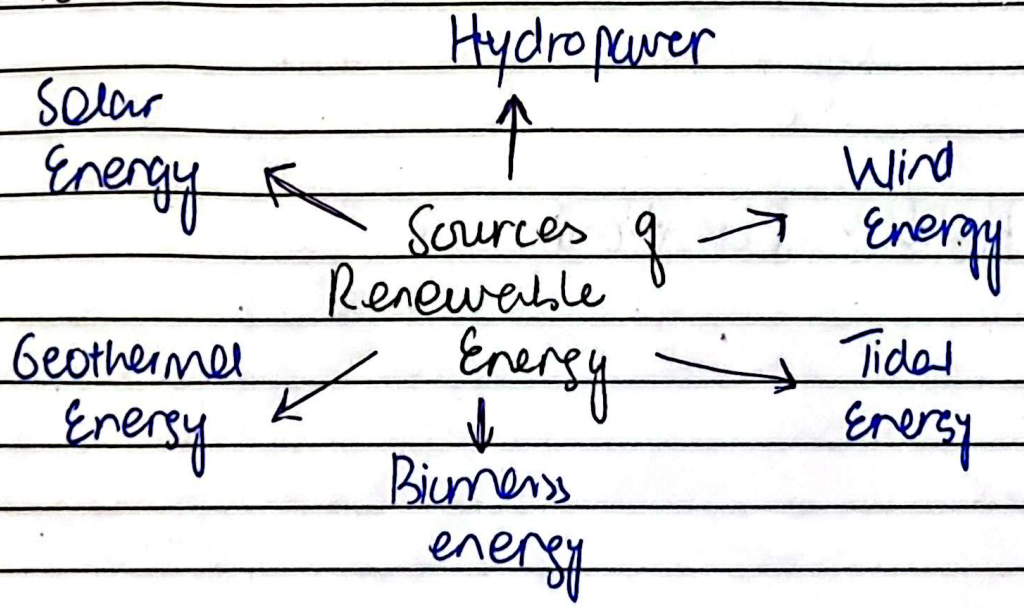 Hydropower
Solar
Energy
Wind
Energy
Sources of
Renewable
Energy
Geothermal
Energy
Tidal
Energy
Biomass
energy